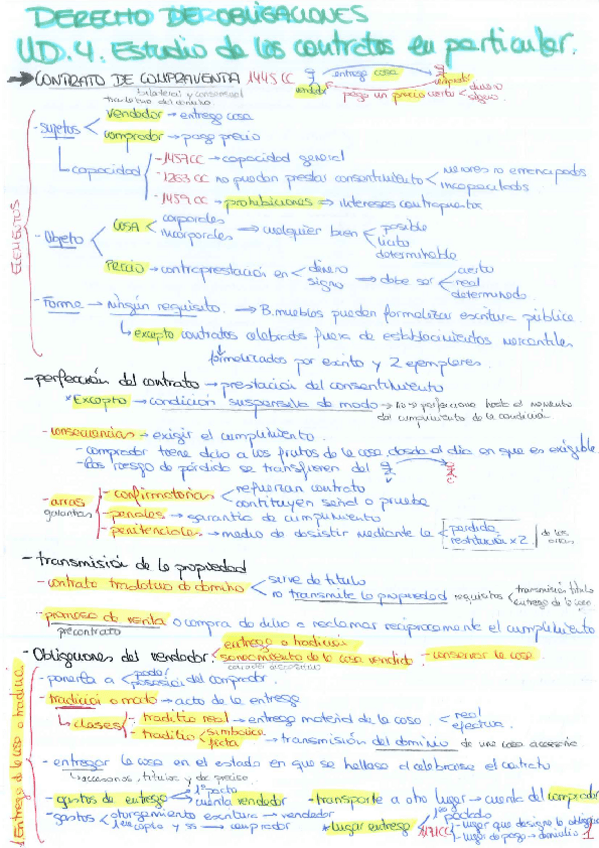 DERECHO DE OBLIGACIONES
UD.4. Estudio de los contratos en particular.
→ CONTRATO DE COMPRAVENTA 1445 CC entrega cosa
bilateral y consensual vendedor comprador
traslativo del dominio pago un precio cierto dinero signo
ELEMENTOS
- Sujetos vendedor → entrega cosa
comprador → paga precio
capacidad - 1457 CC → capacidad general
- 1263 CC no pueden prestar consentimiento menores no emancipados
incapacitados
- 1459 CC → prohibiciones ⇒ intereses contrapuestos
- Objeto COSA corporales
incorporales ⇒ cualquier bien posible
lícito
determinable
Precio → contraprestación en dinero
signo ⇒ debe ser cierto
real
determinado
- Forma → ningún requisito. → B.muebles pueden formalizar escritura pública
↳ excepto contratos celebrados fuera de establecimientos mercantiles
formalizados por escrito y 2 ejemplares.
- perfección del contrato → prestación del consentimiento
* Excepto → condición suspensiva de modo → no se perfecciona hasta el momento
del cumplimiento de la condición
- consecuencias → exigir el cumplimiento.
- comprador tiene dcho a los frutos de la cosa desde el día en que es exigible
- Los riesgo de pérdida se transfieren del V C
- arras - confirmatorias refuerzan contrato
garantías contituyen señal o prueba
- penales → garantía de cumplimiento
- penitenciales → medio de desistir mediante la pérdida
restitución x 2 de las arras
- transmisión de la propiedad
- contrato traslativo de dominio sirve de título
no transmite la propiedad requisitos transmisión título
entrega de la cosa
- promesa de venta o compra da dcho a reclamar recíprocamente el cumplimiento
precontrato
- Obligaciones del vendedor entrega o tradición
saneamiento de la cosa vendida - conservar la cosa
carácter dispositivo
1. Entrega de la cosa o tradición
- ponerla a poder
posesión del comprador.
- tradición o modo → acto de la entrega
↳ clases - traditio real → entrega material de la cosa. real
efectiva
- traditio simbólica
ficta → transmisión del dominio de una cosa
- entregar la cosa en el estado en que se hallase al celebrarse el contrato
↳ accesorios, títulos y de preciso
- gastos de entrega 1º pacto
cuenta vendedor - transporte a otro lugar → cuenta del comprador
- gastos otorgamiento escritura → vendedor
1era copia y ss → comprador * lugar entrega 1171 CC 1º pactado
- lugar que designe la obligac
- lugar de pago → domicilio
1